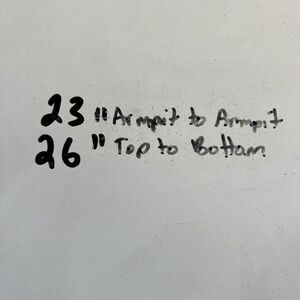 23 "Armpit to Armpit
26 " Top to Bottom